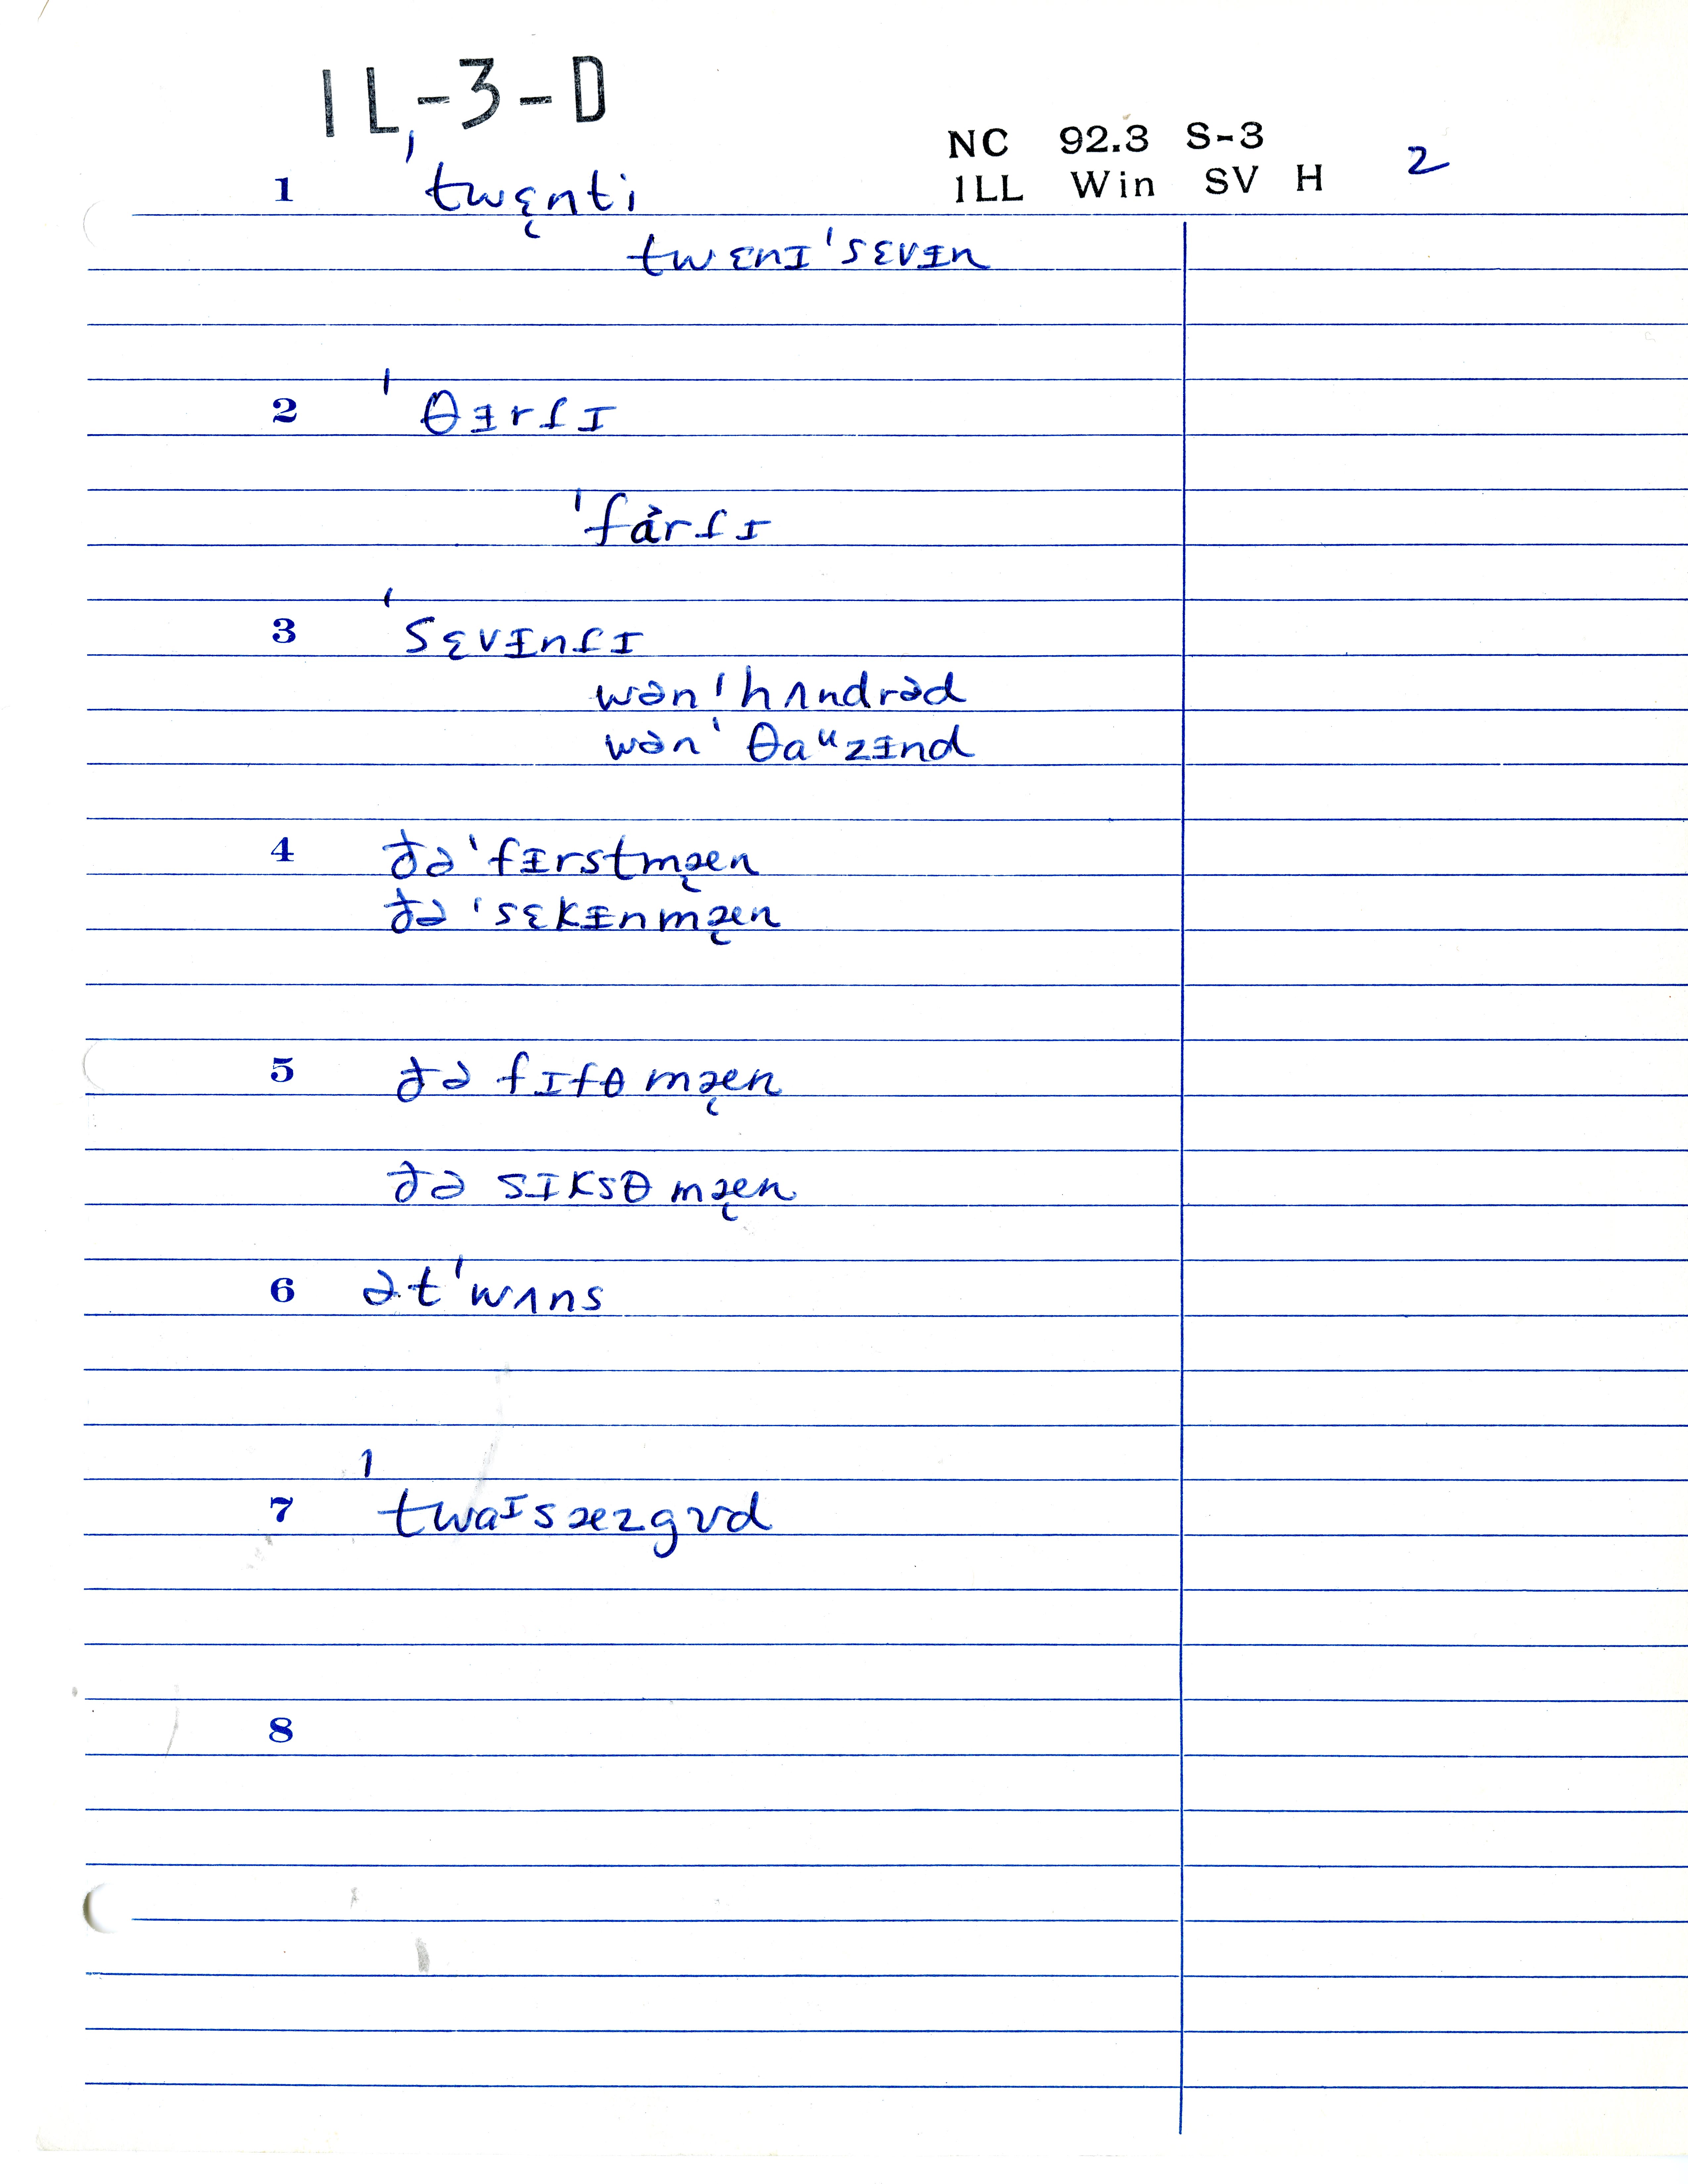 IL-3-D
NC 92.3 S-3
1LL Win SV H 2
1 ˈtwɛ̨nti
twɛnɪˈsɛvɪ̵n
2 ˈθɪ̵rſɪ
ˈfɑ̉rſɪ
3 ˈsɛvɪ̵nſɪ
wənˈhʌndrəd
wənˈθaᶸzɪ̵nd
4 ðəˈfɪ̵rstmæ̨n
ðəˈsɛkɪ̵nmæ̨n
5 ðə fɪfθ mæ̨n
ðə sɪksθ mæ̨n
6 ətˈwʌns
7 ˈtwaᶦsæzgʊd
8